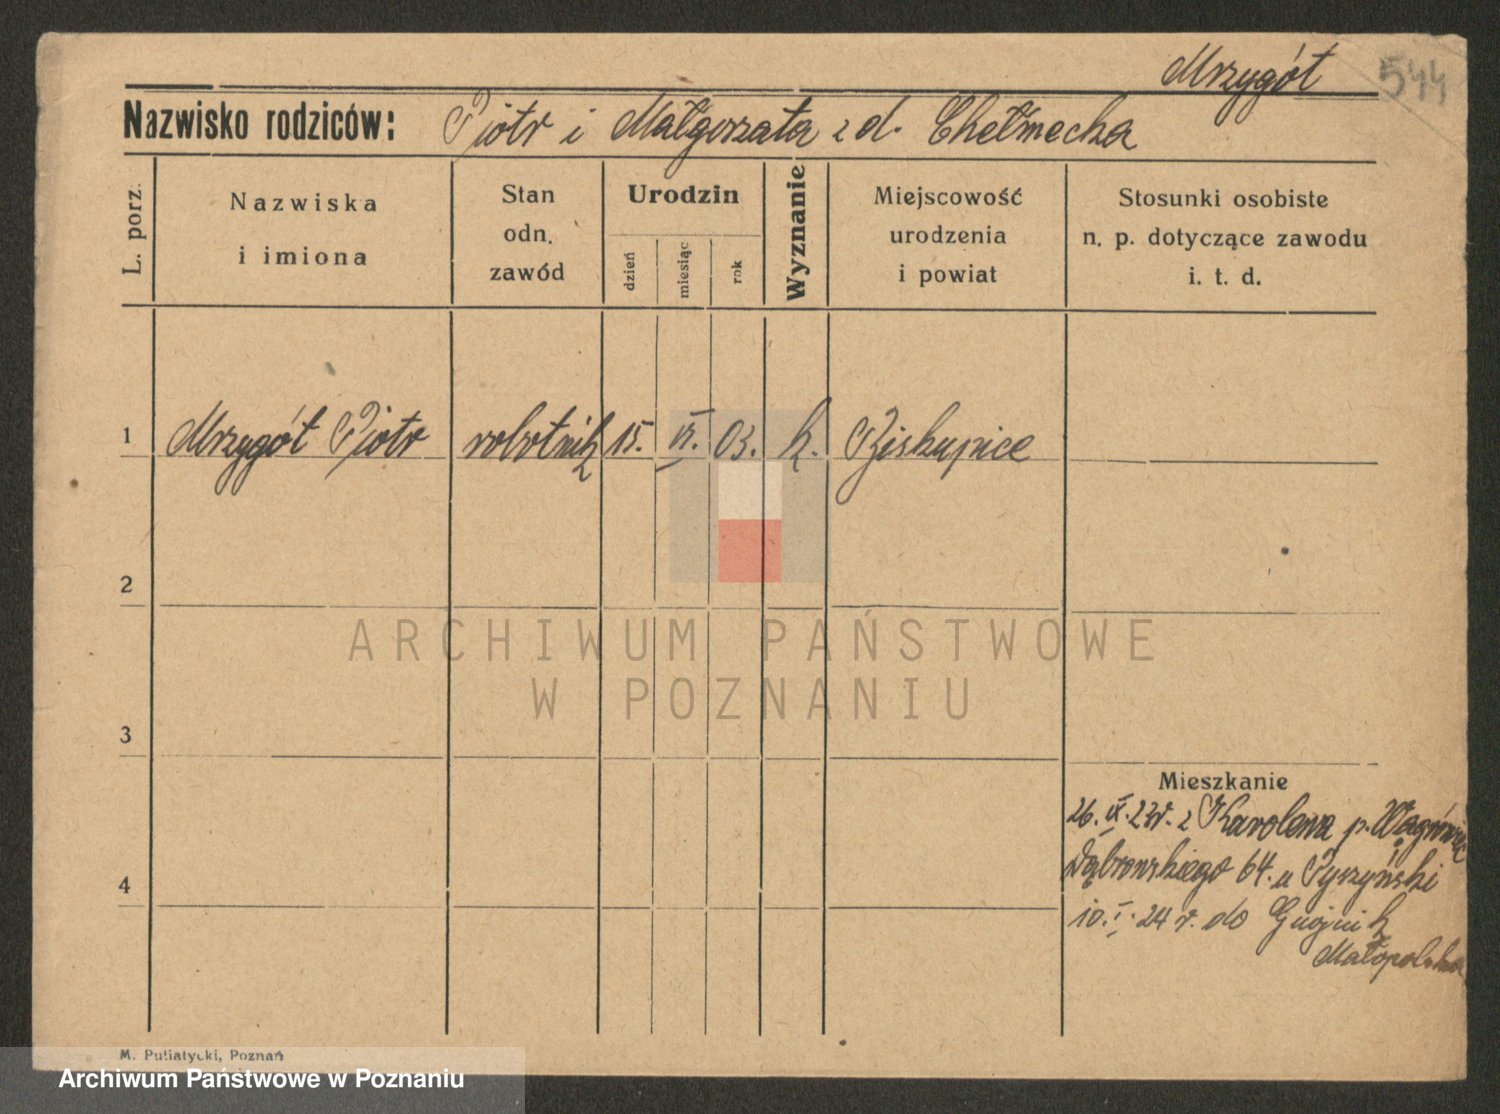 Mrzygót 544
Nazwisko rodziców: Piotr i Małgorzata z d. Chełmecka
L. porz.
Nazwiska
i imiona
Stan
odn.
zawód
Urodzin
dzień
miesiąc
rok
Wyznanie
Miejscowość
urodzenia
i powiat
Stosunki osobiste
n. p. dotyczące zawodu
i. t. d.
1 Mrzygót Piotr robotnik 15. VI. 03. k. Biskupice
2
ARCHIWUM PAŃSTWOWE
W POZNANIU
3
Mieszkanie
26. IX. 23r. z Karolewa p.
Dąbrowskiego 64. u Pyszyński
4
10. I. 24 r. do Gnojnik
Małopolska
M. Putiatycki, Poznań
Archiwum Państwowe w Poznaniu